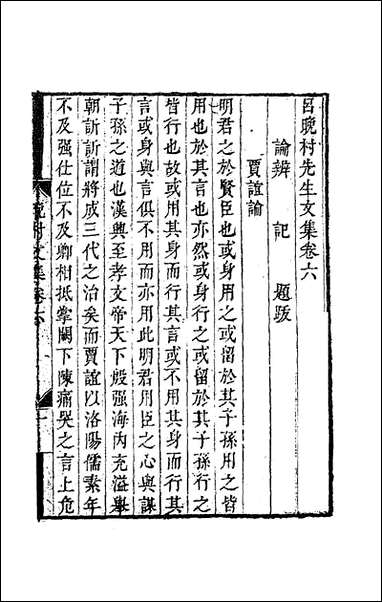 呂晚村先生文集卷六
論辨　記　題跋
賈誼論
明君之於賢臣也或身用之或留於其子孫用之皆
用也於其言也亦然或身行之或留於其子孫行之
皆行也故或用其身而行其言或不用其身而行其
言或身與言俱不用而亦用此明君用臣之心與謀
子孫之道也漢興至孝文帝天下殷强海内充溢舉
朝訢訢謂將成三代之治矣而賈誼以洛陽儒素年
不及强仕位不及卿相抵掌闕下陳痛哭之言上危
晚村文集卷六
一